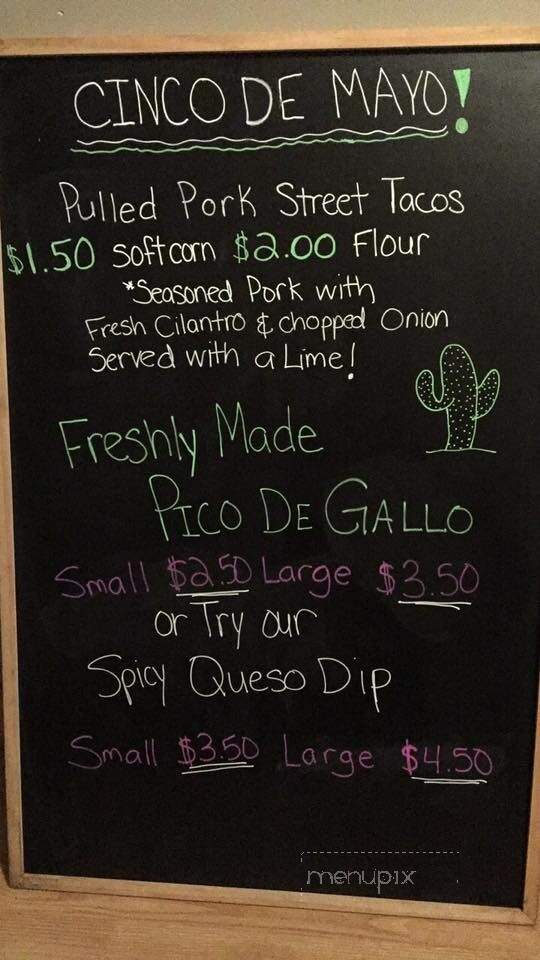 CINCO DE MAYO!
Pulled Pork Street Tacos
$1.50 Soft corn $2.00 Flour
*Seasoned Pork with
Fresh Cilantro & chopped Onion
Served with a Lime!
Freshly Made
PICO DE GALLO
Small $2.50 Large $3.50
or Try our
Spicy Queso Dip
Small $3.50 Large $4.50
menupix